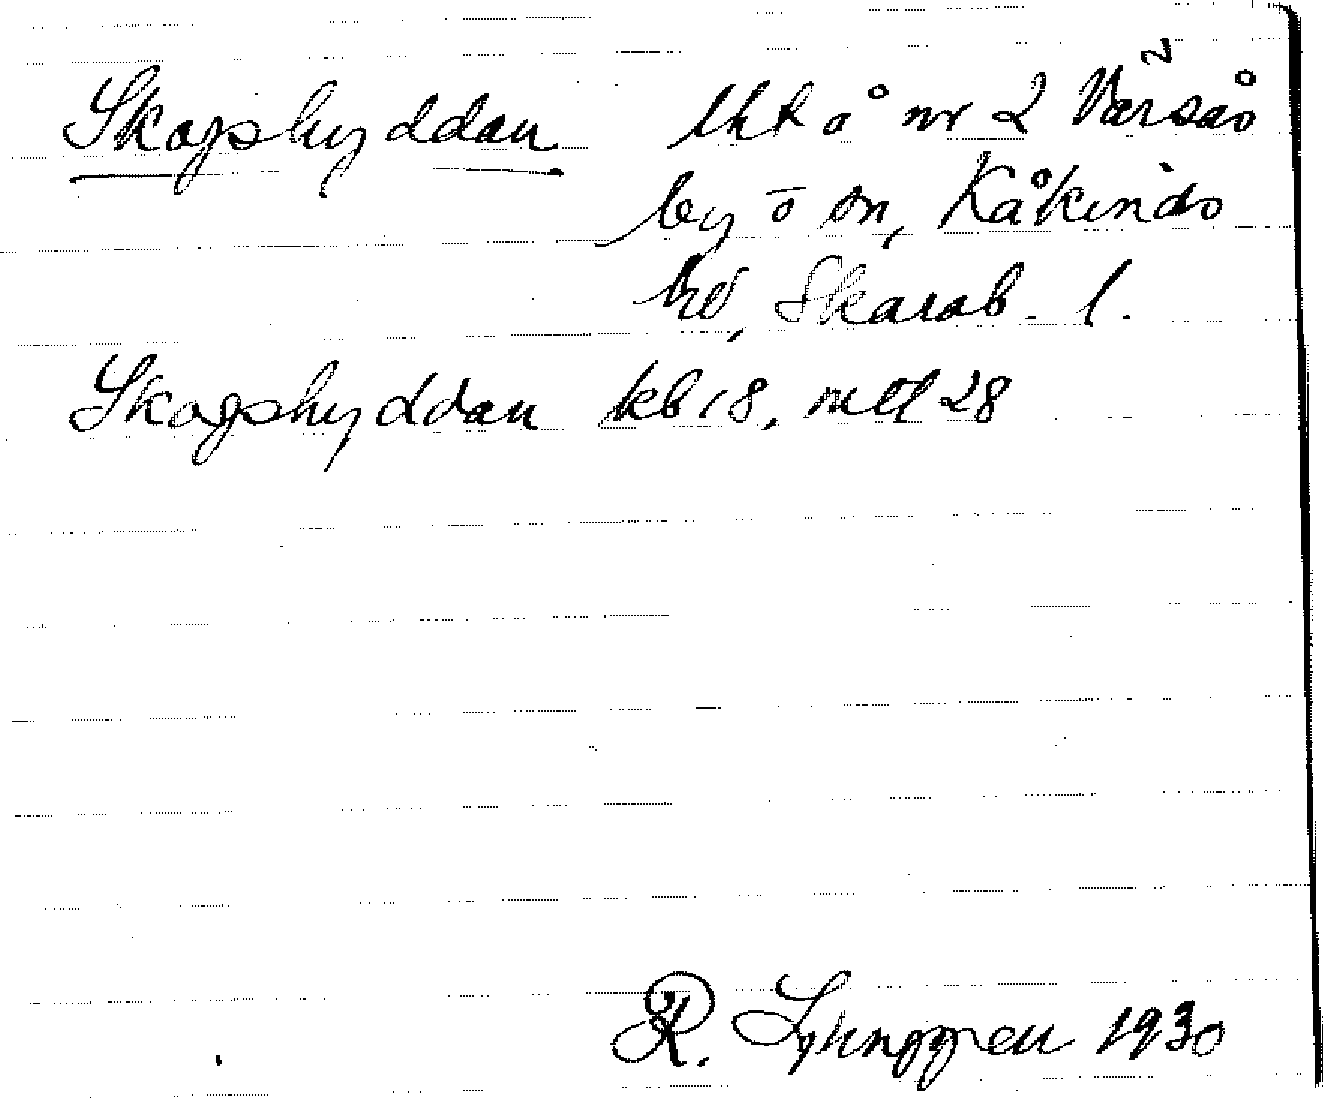 Skogshyddan lht å nr 2 Värsås
by o sn, Kåkinds
hd, Skarab. l.
Skogshyddan kb 18, mtl 28
R. Ljunggren 1930